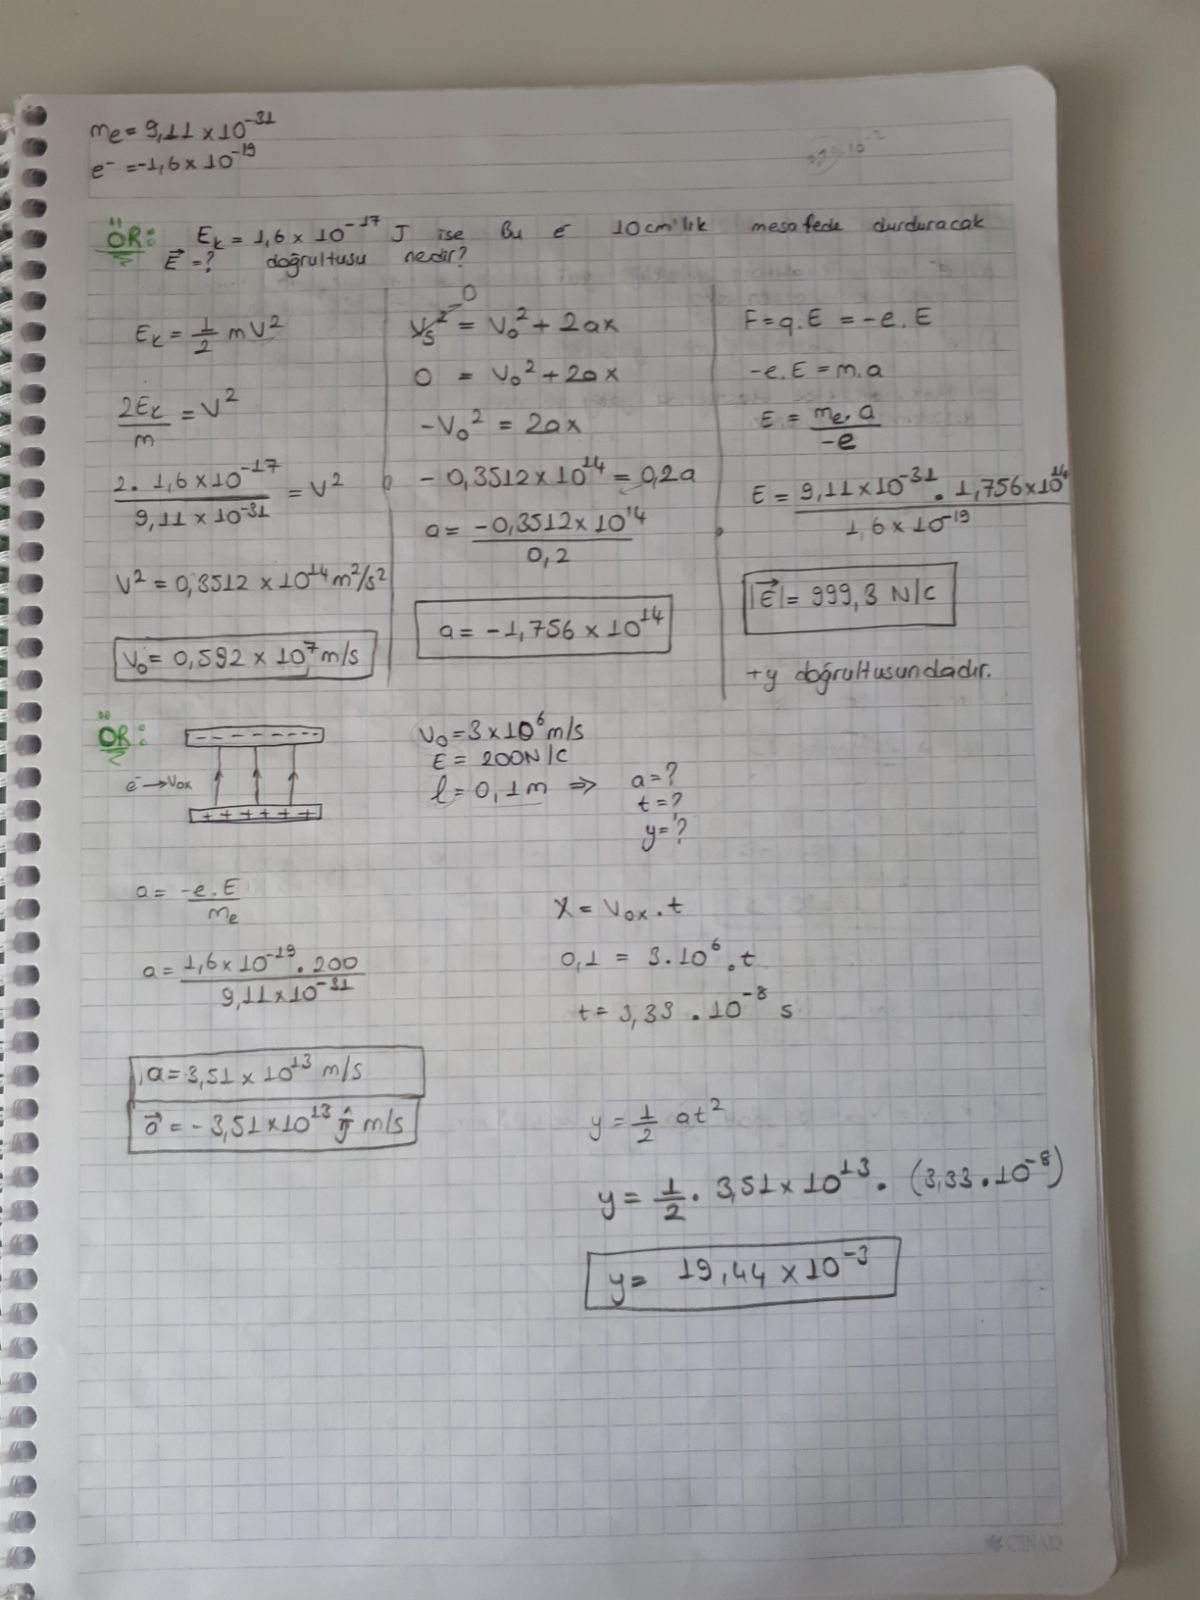 me = 9,11 x 10⁻³¹
e⁻ = -1,6 x 10⁻¹⁹
ÖR: Ek = 1,6 x 10⁻¹⁷ J ise Bu e⁻ 10cm'lik mesafede durduracak
E⃗ = ? doğrultusu nedir?
Ek = 1/2 mV²
2Ek/m = V²
2 . 1,6 x 10⁻¹⁷ / 9,11 x 10⁻³¹ = V²
V² = 0,3512 x 10¹⁴ m²/s²
V₀ = 0,592 x 10⁷ m/s
0
Vs² = V₀² + 2ax
0 = V₀² + 2ax
-V₀² = 2ax
- 0,3512 x 10¹⁴ = 0,2a
a = -0,3512 x 10¹⁴ / 0,2
a = -1,756 x 10¹⁴
F = q.E = -e.E
-e.E = m.a
E = me.a / -e
E = 9,11 x 10⁻³¹ . 1,756 x 10¹⁴ / 1,6 x 10⁻¹⁹
|E⃗| = 999,3 N/C
+y doğrultusundadır.
ÖR:
- - - - - - -
e⁻ → Vox
+ + + + + +
V₀ = 3 x 10⁶ m/s
E = 200N/C
l = 0,1m ⇒ a = ?
t = ?
y = ?
a = -e.E / me
a = 1,6 x 10⁻¹⁹ . 200 / 9,11 x 10⁻³¹
a = 3,51 x 10¹³ m/s
a⃗ = - 3,51 x 10¹³ ĵ m/s
X = Vox . t
0,1 = 3.10⁶ . t
t = 3,33 . 10⁻⁸ s
y = 1/2 at²
y = 1/2 . 3,51 x 10¹³ . (3,33 . 10⁻⁸)
y = 19,44 x 10⁻³
ÇINAR